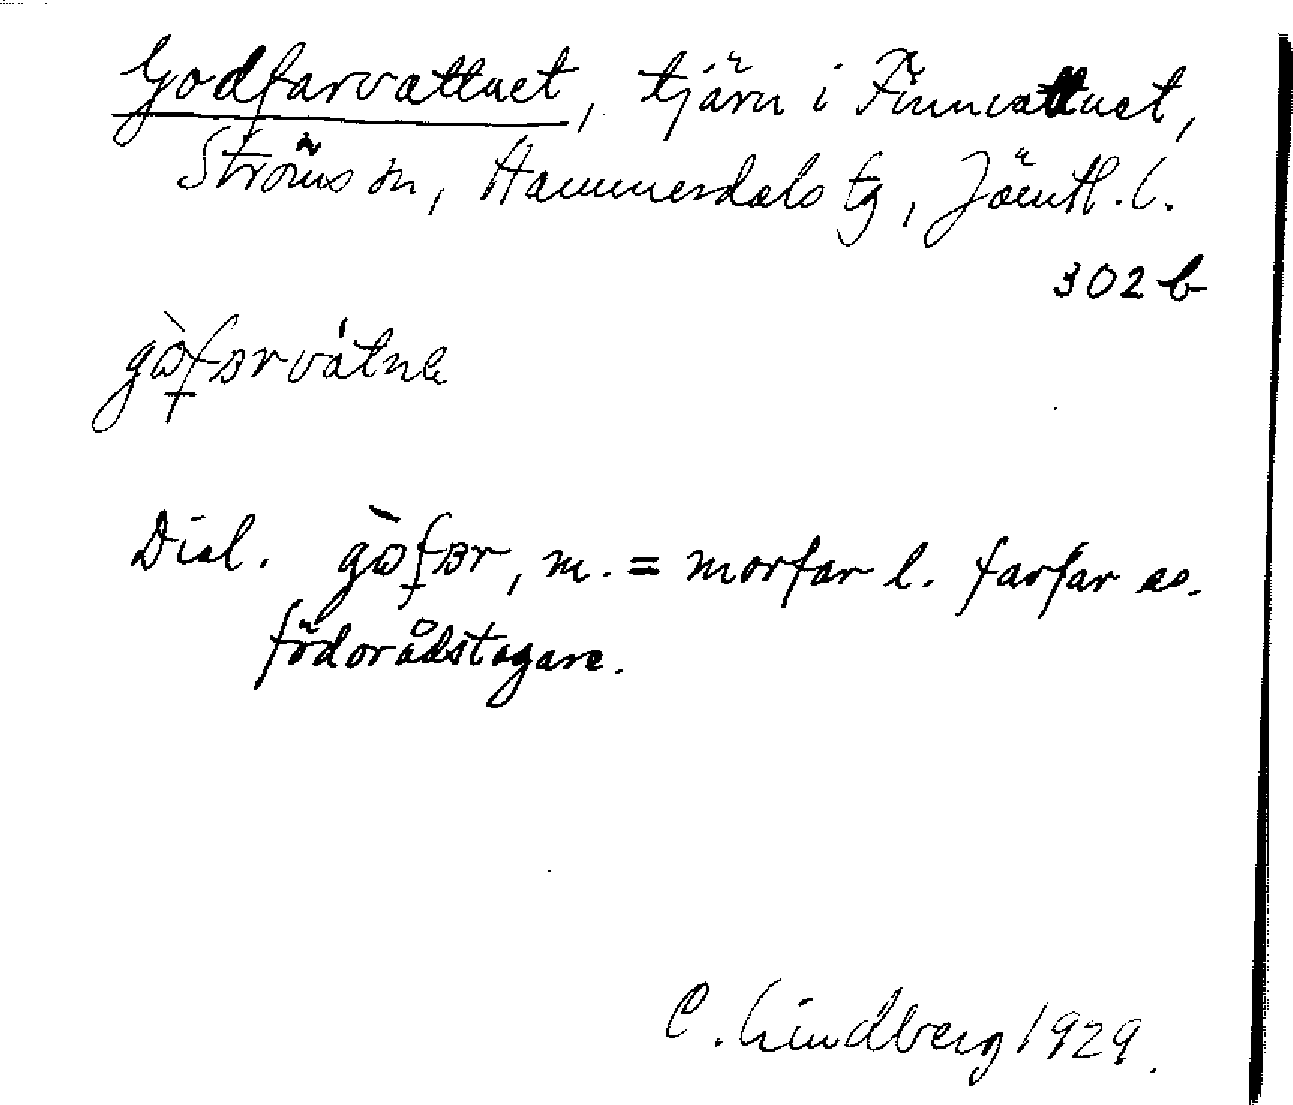 Godfarvattnet, tjärn i Finnvattnet,
Ströms sn, Hammerdals tg, Jämtl. l.
302 b
Dial. m. = morfar l. farfar
födorådstagare.
C. Lindberg 1929.